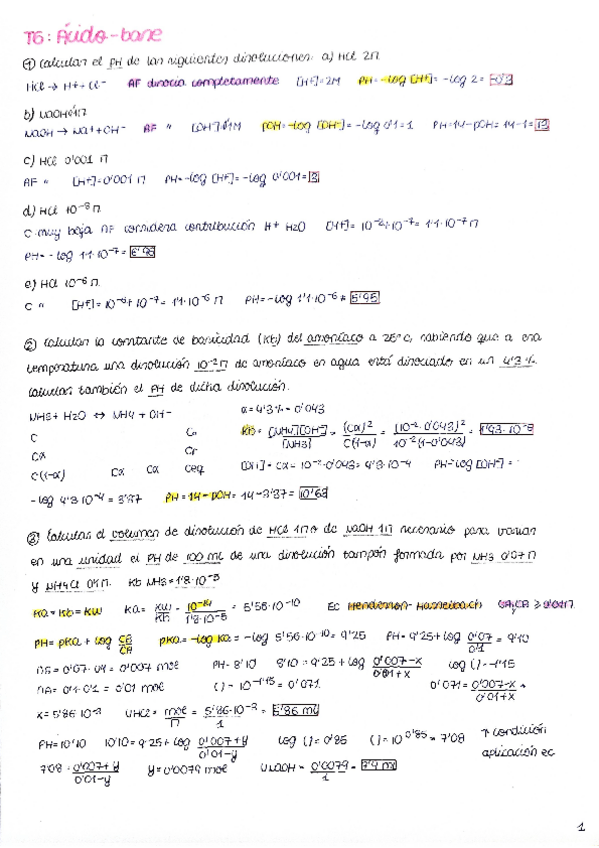 T6: Ácido-base
① Calcular el pH de las siguientes disoluciones: a) HCl 2M
HCl → H+ + Cl- AF disocia completamente [H+]=2M PH=-log [H+]= -log 2 = -0'3
b) NaOH 0'1M
NaOH → Na+ + OH- AF " [OH-]=0'1M pOH=-log [OH-]= -log 0'1=1 PH=14-pOH= 14-1=13
c) HCl 0'001 M
AF " [H+]=0'001 M PH=-log [H+]= -log 0'001=3
d) HCl 10-8 M
C muy baja AF considera contribución H+ H2O
PH= - log 1'1·10-7 = 6'96
e) HCl 10-6 M
C " [H+]= 10-6+10-7= 1'1·10-6 M PH=-log 1'1·10-6 = 5'95
② Calcular la constante de basicidad (Kb) del amoníaco a 25°C, sabiendo que a esa
temperatura una disolución 10-2M de amoníaco en agua está disociado en un 4'3%.
Calcular también el pH de dicha disolución.
NH3 + H2O ↔ NH4 + OH- α=4'3% = 0'043
C Co Kb= [NH4][OH-]/[NH3] = (Cα)2/C(1-α) = (10-2·0'043)2/10-2(1-0'043) = 1'93·10-5
Cα
C(1-α) Cα Cα Ceq [OH-]= Cα= 10-2·0'043= 4'3·10-4 PH=-log [OH-] =
-log 4'3·10-4 = 3'37 PH=14-pOH= 14-3'37= 10'63
③ Calcular el volumen de disolución de HCl 1M o de NaOH 1M necesario para variar
en una unidad el pH de 100 mL de una disolución tampón formada por NH3 0'07 M
y NH4Cl 0'1 M. Kb NH3=1'8·10-5
Ka·Kb=KW Ka= KW/Kb = 10-14/1'8·10-5 = 5'56·10-10 Ec Henderson-Hasselbach
PH= pKa + log CB/CA pKa=-log Ka= -log 5'56·10-10= 9'25 PH= 9'25+log 0'07/0'1 = 9'10
= 0'007 mol PH= 8'10 8'10 = 9'25 + log 0'007-x/0'01+x log ()= -1'15
= 0'01 mol ()= 10-1'15= 0'071 0'071= 0'007-x/0'01+x
x= 5'86·10-3 VHCl= mol/M = 5'86·10-3/1 = 5'86 mL
PH=10'10 10'10= 9'25+log 0'007+y/0'01-y log ()= 0'85 ()= 10 0'85= 7'08 ↑ condición
aplicación ec
7'08 = 0'007+y/0'01-y y= 0'0079 mol VNaOH= 0'0079/1 = 7'9 mL
1